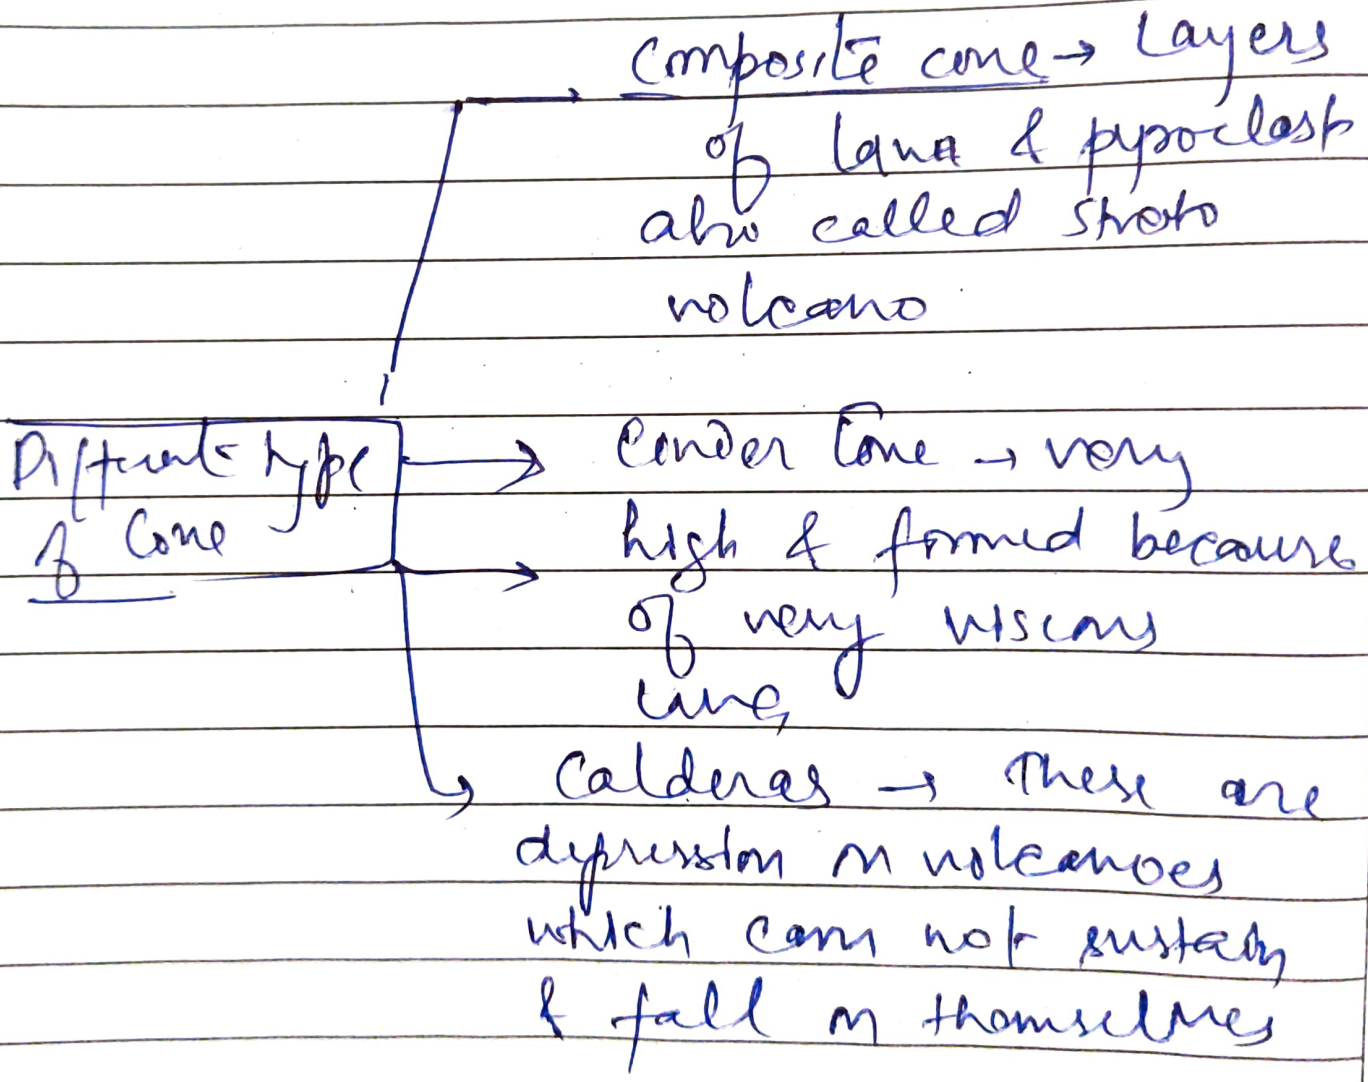 Composite cone → Layers
of lava & pyroclast
also called strato
volcano
Different type
of Cone
Cinder Cone → very
high & formed because
of very viscous
lava
Calderas → These are
depression in volcanoes
which can not sustain
& fall in themselves